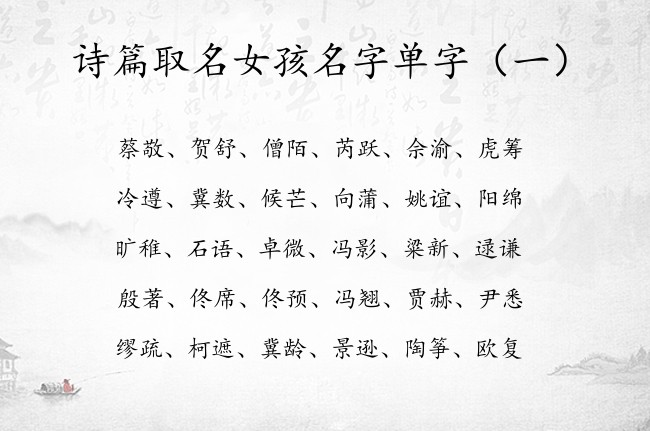 诗篇取名女孩名字单字（一）
蔡敬、贺舒、僧陌、芮跃、佘渝、虎筹
冷遵、冀数、候芒、向蒲、姚谊、阳绵
旷稚、石语、卓微、冯影、梁新、逯谦
殷著、佟席、佟预、冯翘、贾赫、尹悉
缪疏、柯遮、冀龄、景逊、陶筝、欧复